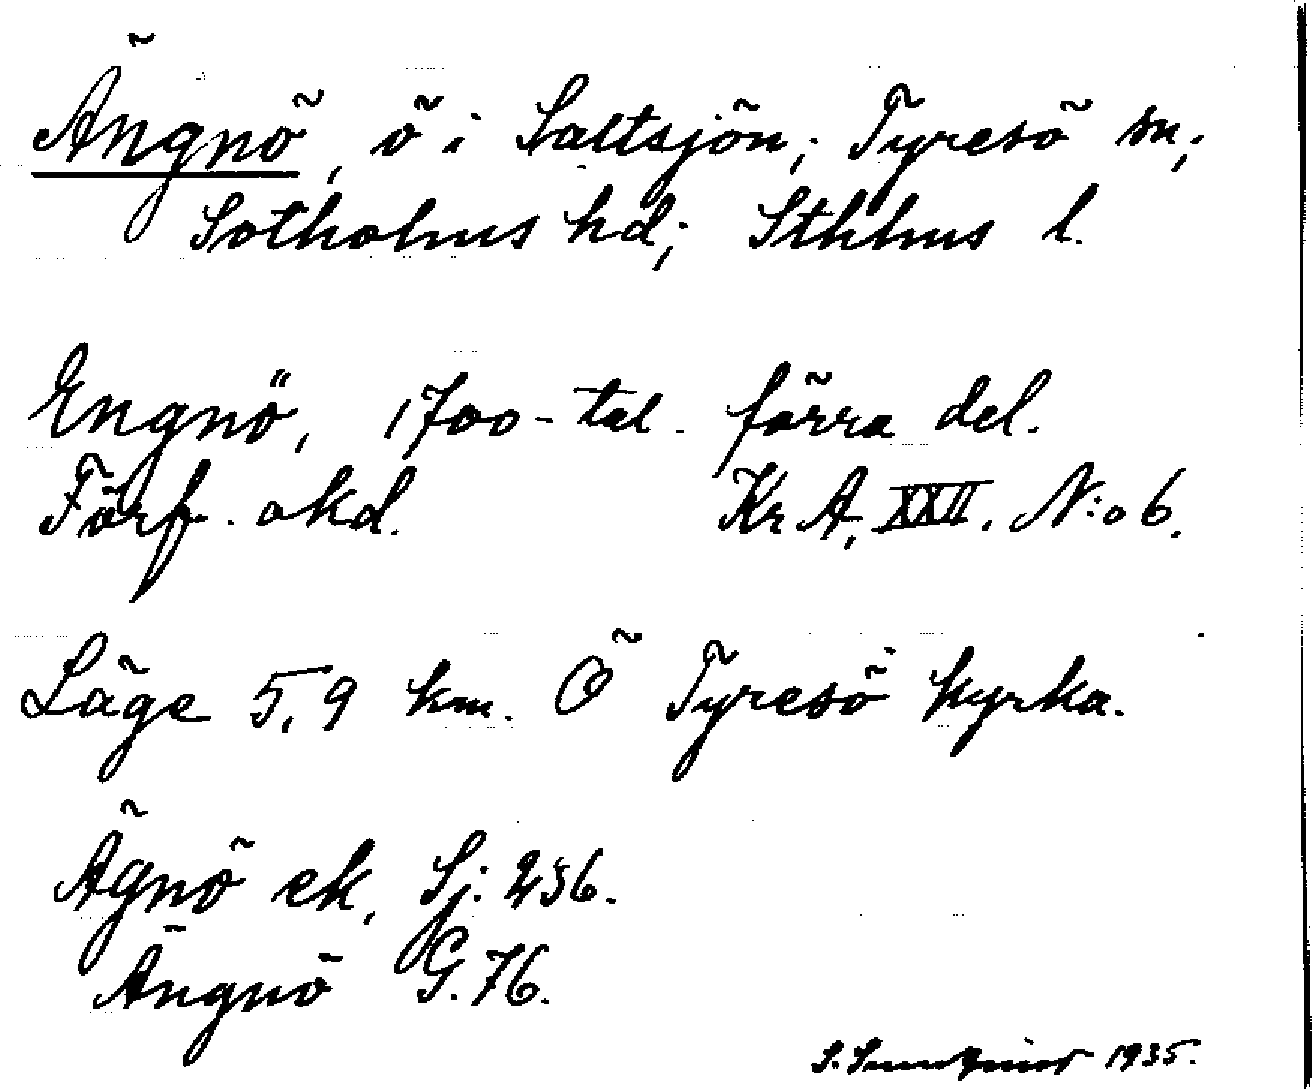 Ängnö, ö i Saltsjön; Tyresö sn;
Sotholms hd; Sthlms l.
Engnö, 1700-tal. förra del.
Förf. okd. Kr A, XXII. N:o 6.
Läge 5,9 km. Ö Tyresö kyrka.
Ägnö ek, Sj. 256.
Ängnö G. 76.
S. 1935.